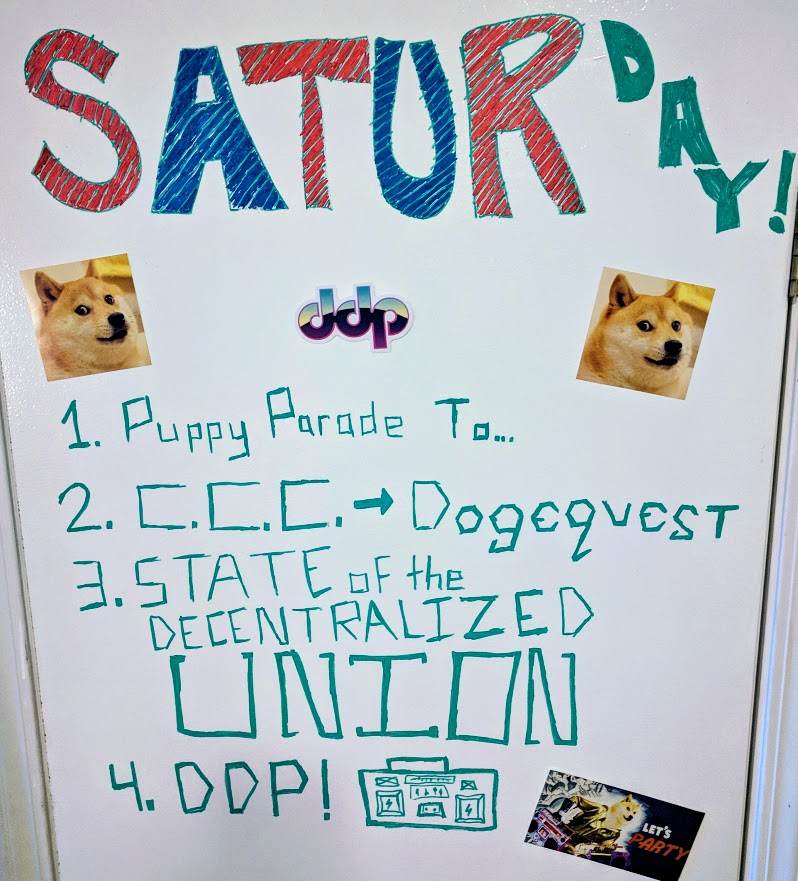 SATURDAY!
ddp
1. Puppy Parade To...
2. C.C.C. → Dogequest
3. STATE oF the
DECENTRALIZED
UNION
4. DDP!
LET'S
PARTY